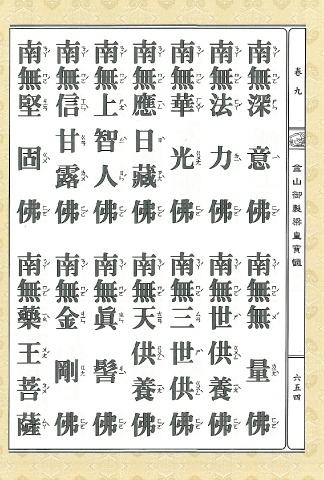 卷九
金山御製梁皇寶懺
六五四
南無深意佛 南無無量佛
南無法力佛 南無世供養佛
南無華光佛 南無三世供佛
南無應日藏佛 南無天供養佛
南無上智人佛 南無眞髻佛
南無信甘露佛 南無金剛佛
南無堅固佛 南無藥王菩薩